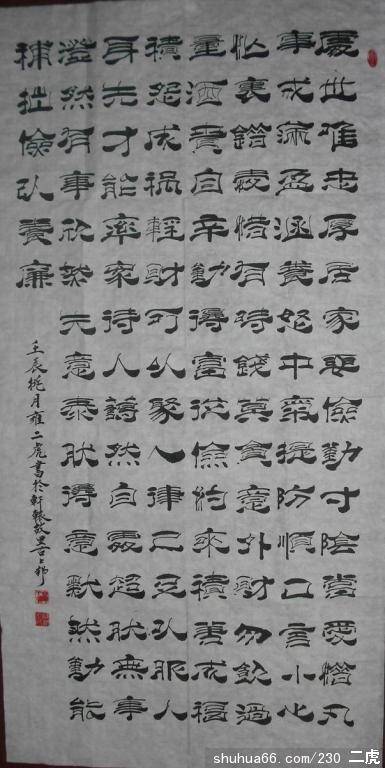 處世惟忠厚居家要儉勤寸陰當愛惜凡
事戒滿盈涵養怒中氣提防順口言小心
忙裏錯愛惜有時錢莫貪意外財勿飲過
量酒貴自辛勤得富從儉約來積善成福
積怨成禍輕財可以聚人律己足以服人
身先才能率家待人藹然自處超然無事
澄然有事斬然失意泰然得意默然勤能
補拙儉以養廉
壬辰桃月雍二虎書於軒轅故里古邽
shuhua66.com/230 二虎